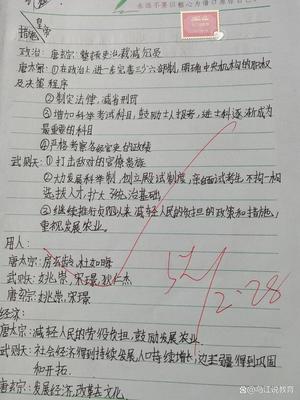 永远不要以粗心为借口原谅自己
措施 皇帝
政治:唐玄宗:整顿吏治,裁减冗员
唐太宗:①在政治上,进一步完善三省六部制,明确中央机构的职权
及决策程序
②制定法律,减省刑罚
③增加科举考试科目,鼓励士人报考,进士科逐渐成为
最重要的科目
④严格考察各级官吏的政绩
武则天:①打击敌对的官僚贵族
②大力发展科举制,创立殿试制度,亲自面试考生,不拘一格
选拔人才,扩大了统治基础
③继续推行贞观以来减轻人民的负担的政策和措施,
重视发展农业。
用人:
唐太宗:房玄龄,杜如晦
武则天:姚崇,宋璟,狄仁杰
唐玄宗:姚崇,宋璟
经济:
唐太宗:减轻人民的劳役负担,鼓励发展农业.
武则天:社会经济得到持续发展,人口持续增长,边疆得到巩固
和开拓.
唐玄宗:发展经济,改革去文化
2.28
@乌江说教育